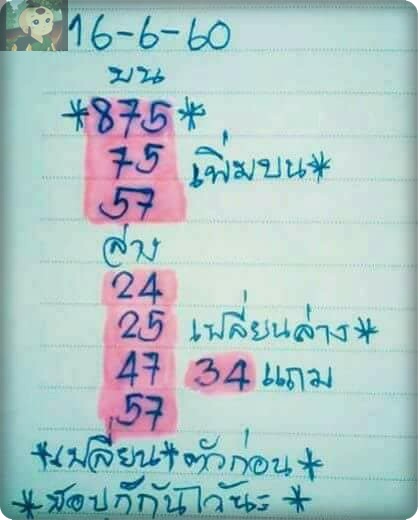 16-6-60
บน
*875*
75 เพิ่มบน*
57
ล่าง
24
25 เปลี่ยนล่าง*
47 34 แถม
57
*เปลี่ยน*ตัวก่อน*
*สอปกักันไวันะ*